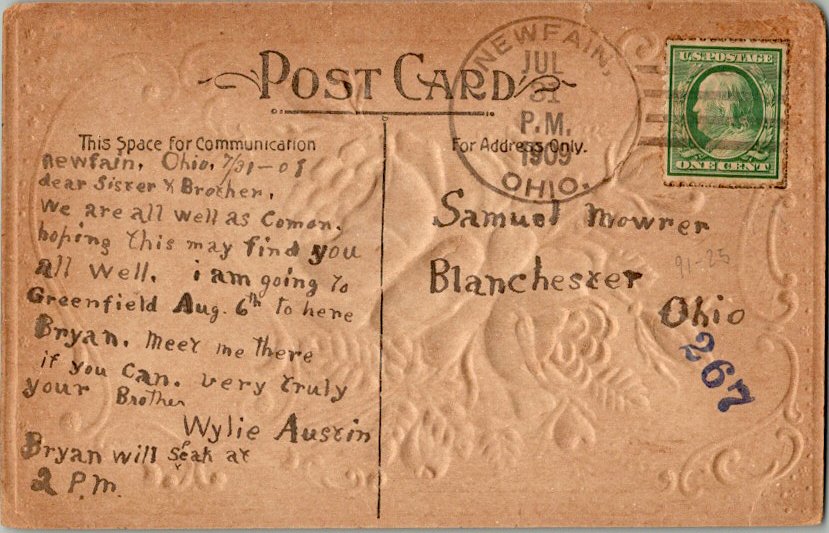 POST CARD
NEWFAIN,
JUL
31
P.M.
1909
OHIO.
U.S. POSTAGE
ONE CENT
This Space for Communication
For Address Only.
newfain, Ohio, 7/31-09
dear Sister & Brother,
we are all well as Comon.
hoping this may find you
all well. i am going to
Greenfield Aug. 6th to here
Bryan. meet me there
if you can. very truly
your Brother
Wylie Austin
Bryan will seak at
2 P.m.
Samuel Mowrer
Blanchester
Ohio
91-25
267